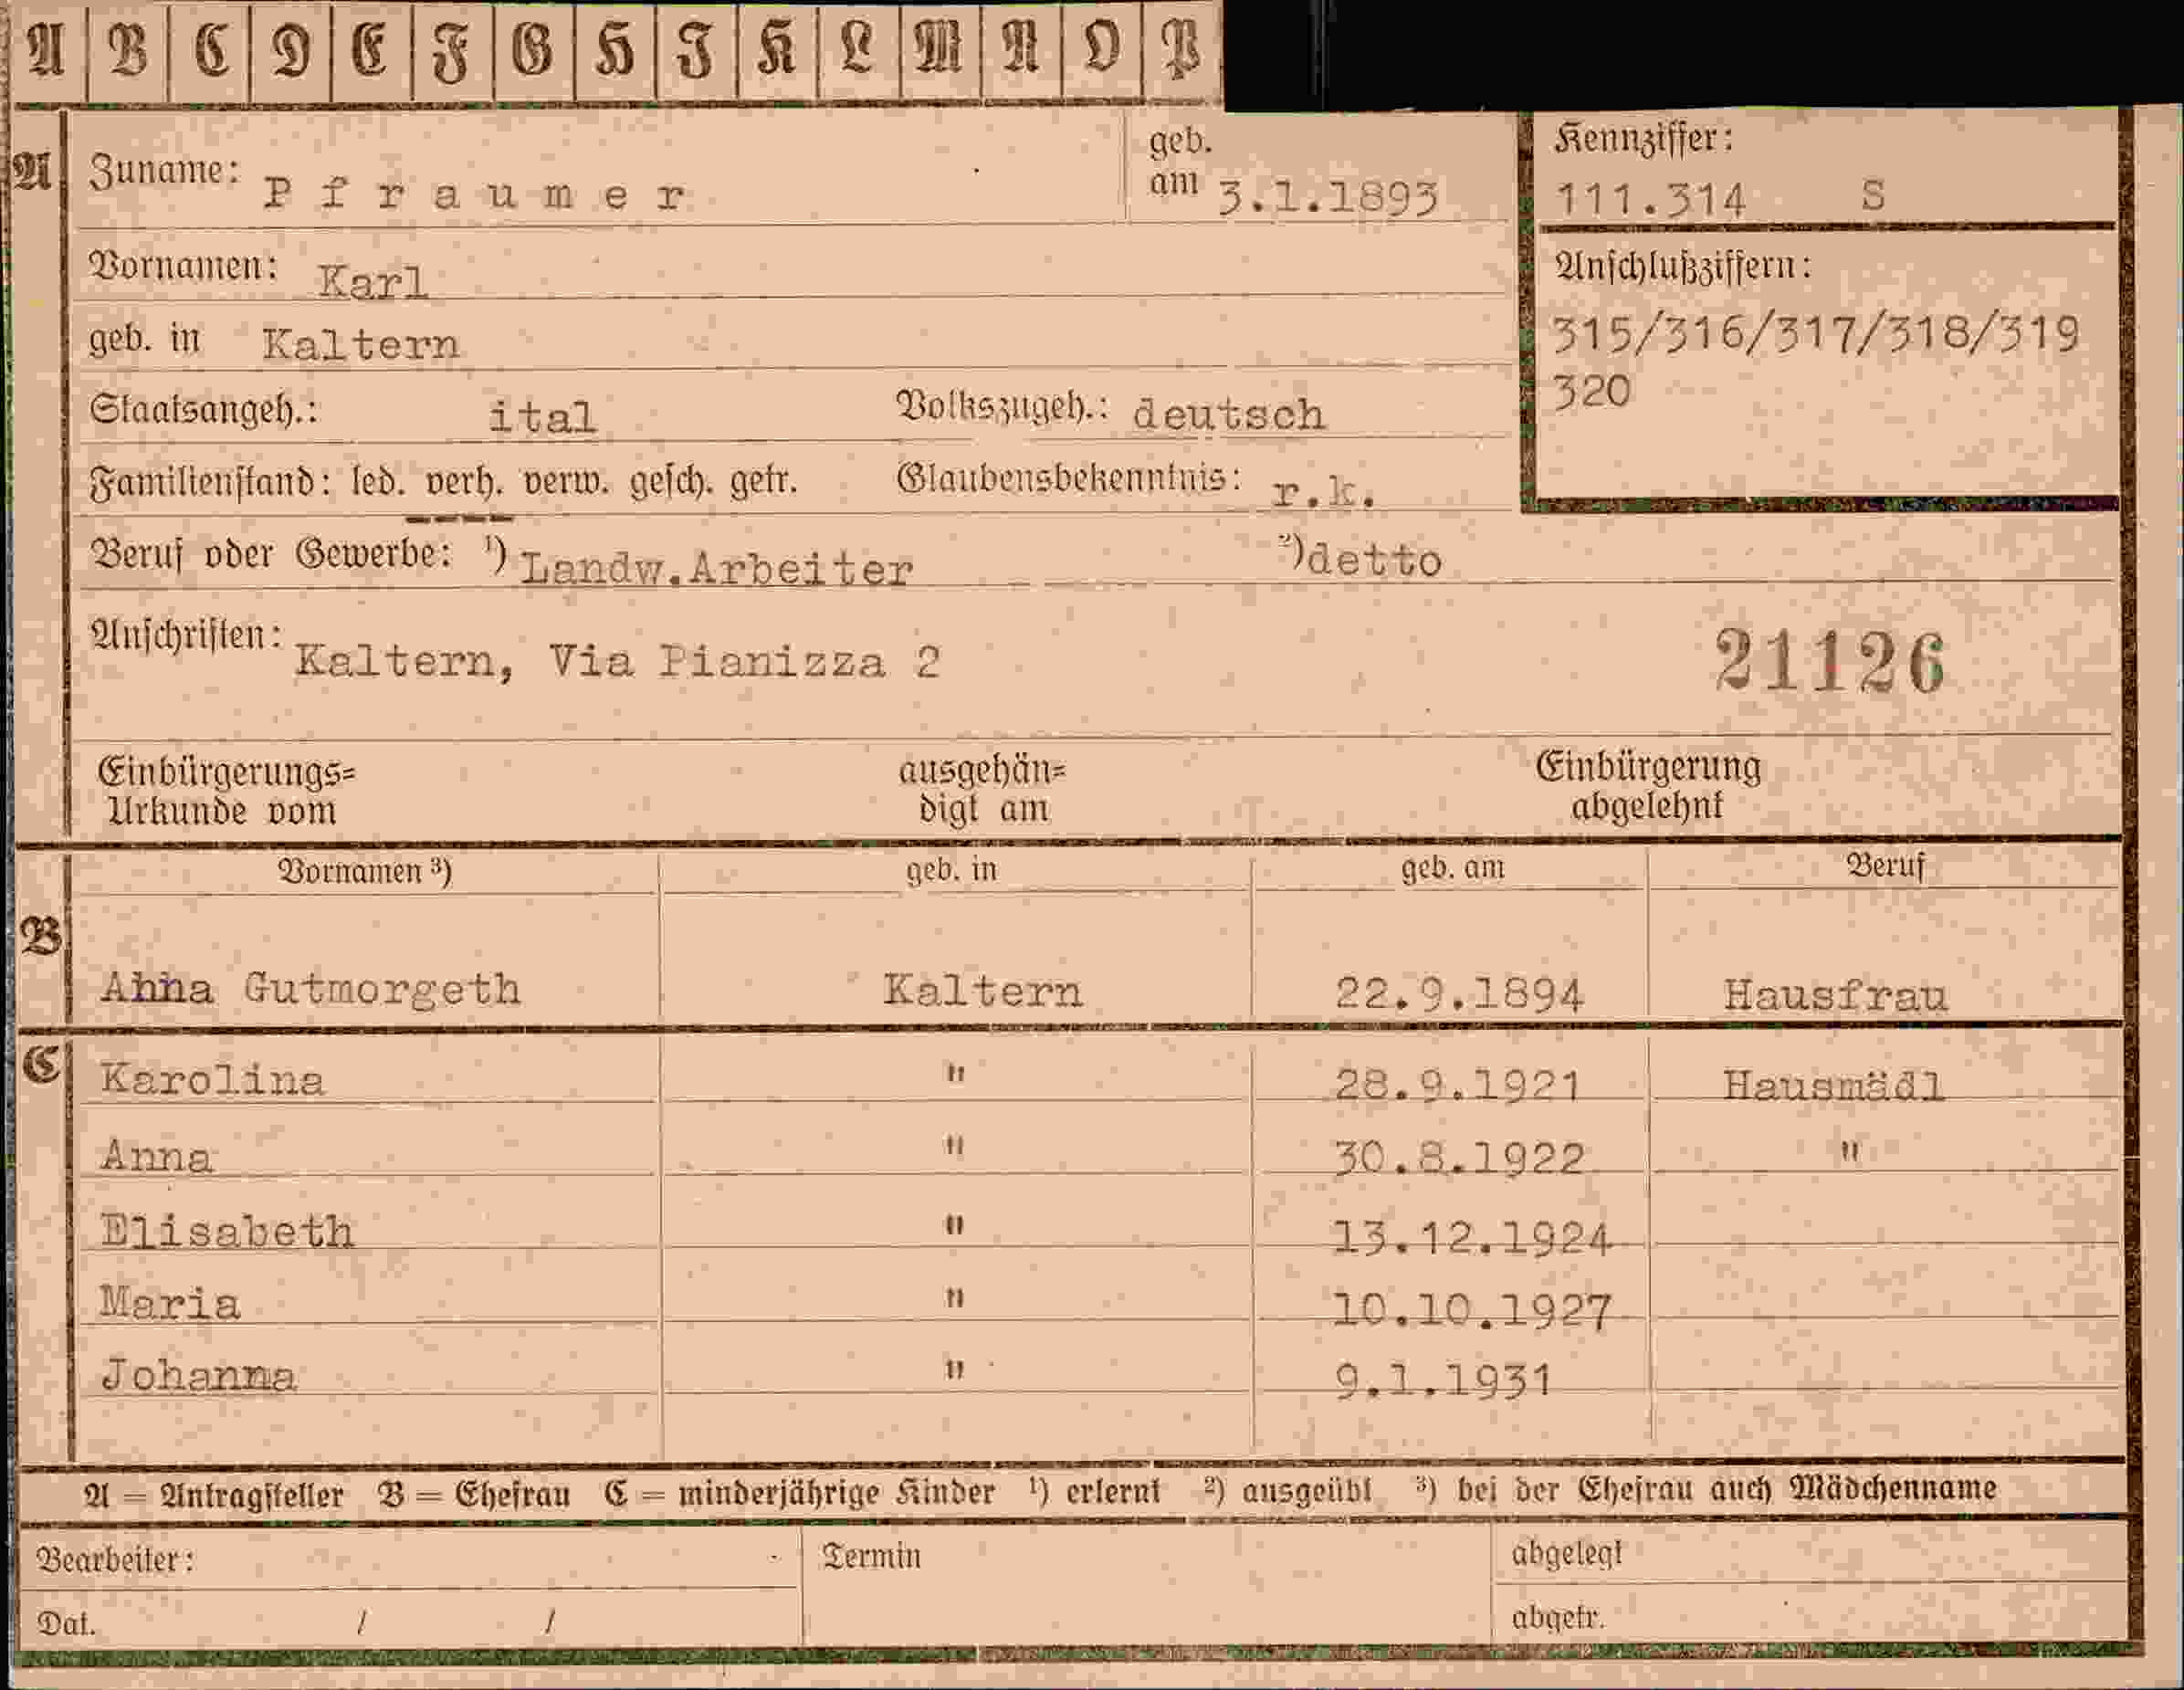 A B C D E F G H I K L M N O P
A Zuname: Pfraumer geb. am 3.1.1893 Kennziffer:
111.314 S
Vornamen: Karl Anschlußziffern:
geb. in Kaltern 315/316/317/318/319
320
Staatsangeh.: ital Volkszugeh.: deutsch
Familienstand: led. verh. verw. gesch. getr. Glaubensbekenntnis: r.k.
Beruf oder Gewerbe: ¹) Landw.Arbeiter ²)detto
Anschriften: Kaltern, Via Pianizza 2 21126
Einbürgerungs= ausgehän= Einbürgerung
Urkunde vom digt am abgelehnt
Vornamen ³) geb. in geb. am Beruf
B
Anna Gutmorgeth Kaltern 22.9.1894 Hausfrau
C Karolina " 28.9.1921 Hausmädl
Anna " 30.8.1922 "
Elisabeth " 13.12.1924
Maria " 10.10.1927
Johanna " 9.1.1931
A = Antragsteller B = Ehefrau C = minderjährige Kinder ¹) erlernt ²) ausgeübt ³) bei der Ehefrau auch Mädchenname
Bearbeiter: Termin abgelegt
Dat. / / abgetr.